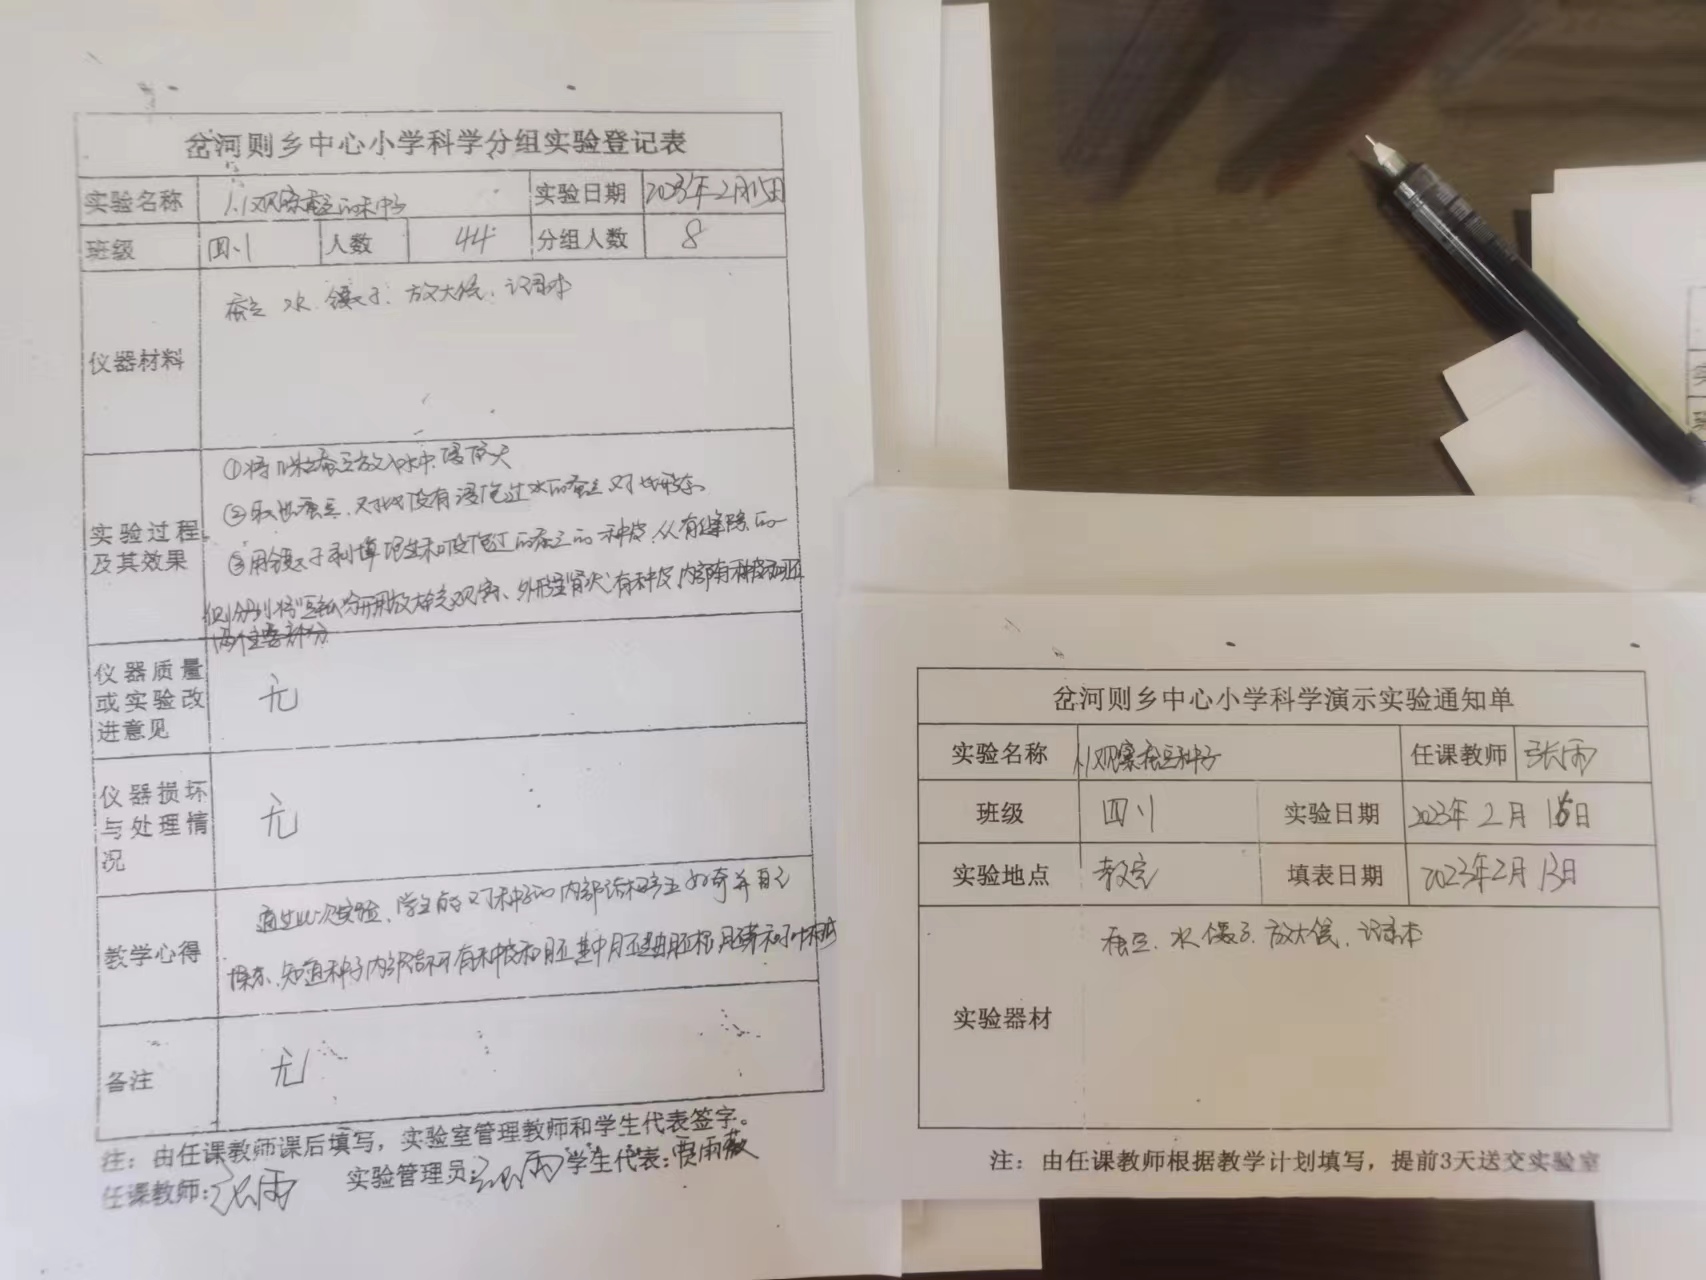 岔河则乡中心小学科学分组实验登记表
实验名称 1.1观察蚕豆的种子 实验日期 2023年2月15日
班级 四.1 人数 44 分组人数 8
仪器材料
蚕豆 水、镊子、放大镜、记录本
实验过程及其效果
①将几粒蚕豆放入水中浸泡一天
②取出蚕豆,对比没有浸泡过水的蚕豆对比形态
③用镊子剥掉浸泡过的蚕豆的种皮,从有缝隙的一
侧分开用放大镜观察、外形呈肾状有种皮,内部有种皮和胚
两个主要部分
仪器质量或实验改进意见
无
仪器损坏与处理情况
无
教学心得
通过此次实验,学生能对种子的内部结构产生好奇并自己
探索、知道种子内部结构有种皮和胚 其中胚是由胚根、胚芽和子叶构成
备注
无
注:由任课教师课后填写,实验室管理教师和学生代表签字。
任课教师:张雨 实验管理员:张雨 学生代表:贾雨薇
岔河则乡中心小学科学演示实验通知单
实验名称 1.1观察蚕豆种子 任课教师 张雨
班级 四.1 实验日期 2023年2月15日
实验地点 教室 填表日期 2023年2月13日
实验器材
蚕豆、水、镊子、放大镜、记录本
注:由任课教师根据教学计划填写,提前3天送交实验室
实